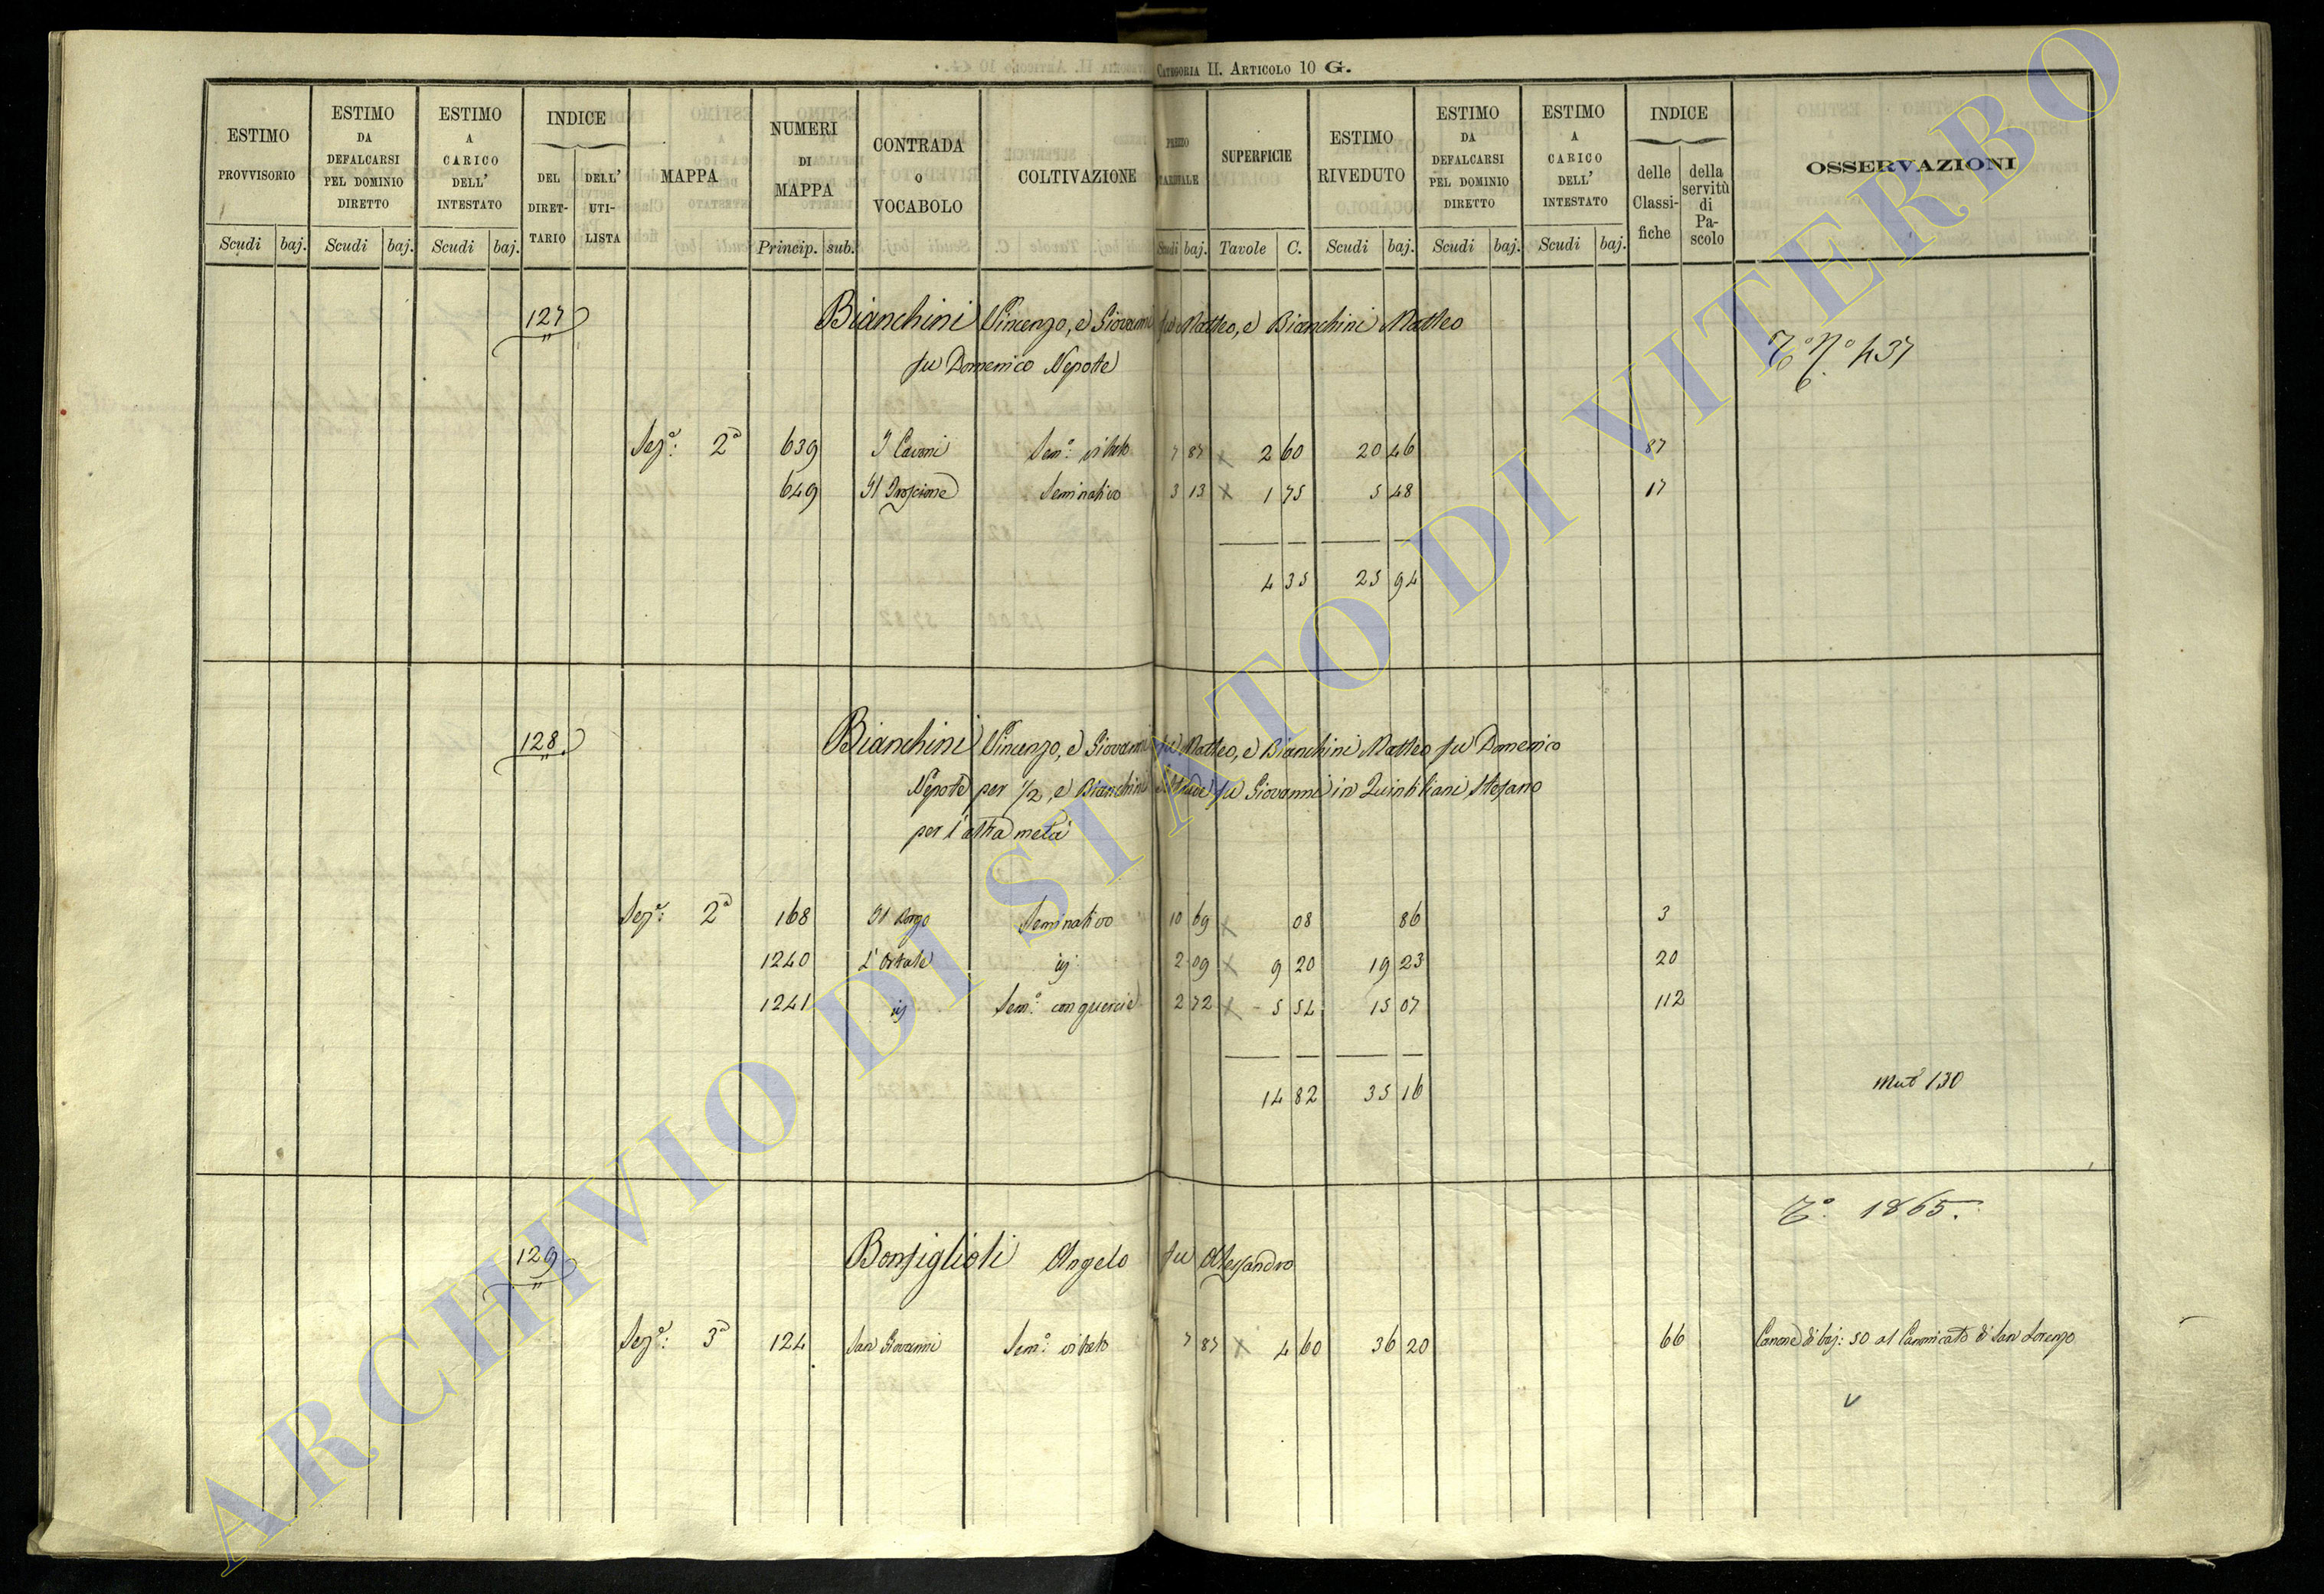 CATEGORIA II. ARTICOLO 10 G.
ESTIMO PROVVISORIO Scudi baj.
ESTIMO DA DEFALCARSI PEL DOMINIO DIRETTO Scudi baj.
ESTIMO A CARICO DELL' INTESTATO Scudi baj.
INDICE DEL DIRET-TARIO DELL' UTI-LISTA
MAPPA
NUMERI DI MAPPA Princip. sub.
CONTRADA O VOCABOLO
COLTIVAZIONE
Scudi baj.
SUPERFICIE Tavole C.
ESTIMO RIVEDUTO Scudi baj.
ESTIMO DA DEFALCARSI PEL DOMINIO DIRETTO Scudi baj.
ESTIMO A CARICO DELL' INTESTATO Scudi baj.
INDICE delle Classi-fiche della servitù di Pa-scolo
OSSERVAZIONI
127 Bianchini Vincenzo, e Giovanni fu Matteo, e Bianchini Matteo
fu Domenico Nepote
Tº Nº 437
Sezº: 2ª 639 I Cavoni Semº: vitato 7 87 x 2 60 20 46 87
649 Seminativo 3 13 x 1 75 5 48 17
4 35 25 94
128 Bianchini Vincenzo, e Giovanni fu Matteo, e Bianchini Matteo fu Domenico
Nepote per 1/2, e Bianchini fu Giovanni in Quintiliani Stefano
per l'altra metà
Sezº: 2ª 168 Il Borgo Seminativo 10 69 x 08 86 3
1240 L'Ortale id 2 09 x 9 20 19 23 20
1241 id Semº: con quercie 2 72 x 5 54 15 07 112
14 82 35 16
Mutº 130
Tº. 1865.
129 Bonfiglioli Angelo fu Alessandro
Sezº: 3ª 124 San Giovanni Semº: vitato 7 87 x 4 60 36 20 66 Canone di baj: 50 al Canonicato di San Lorenzo
ARCHIVIO DI STATO DI VITERBO